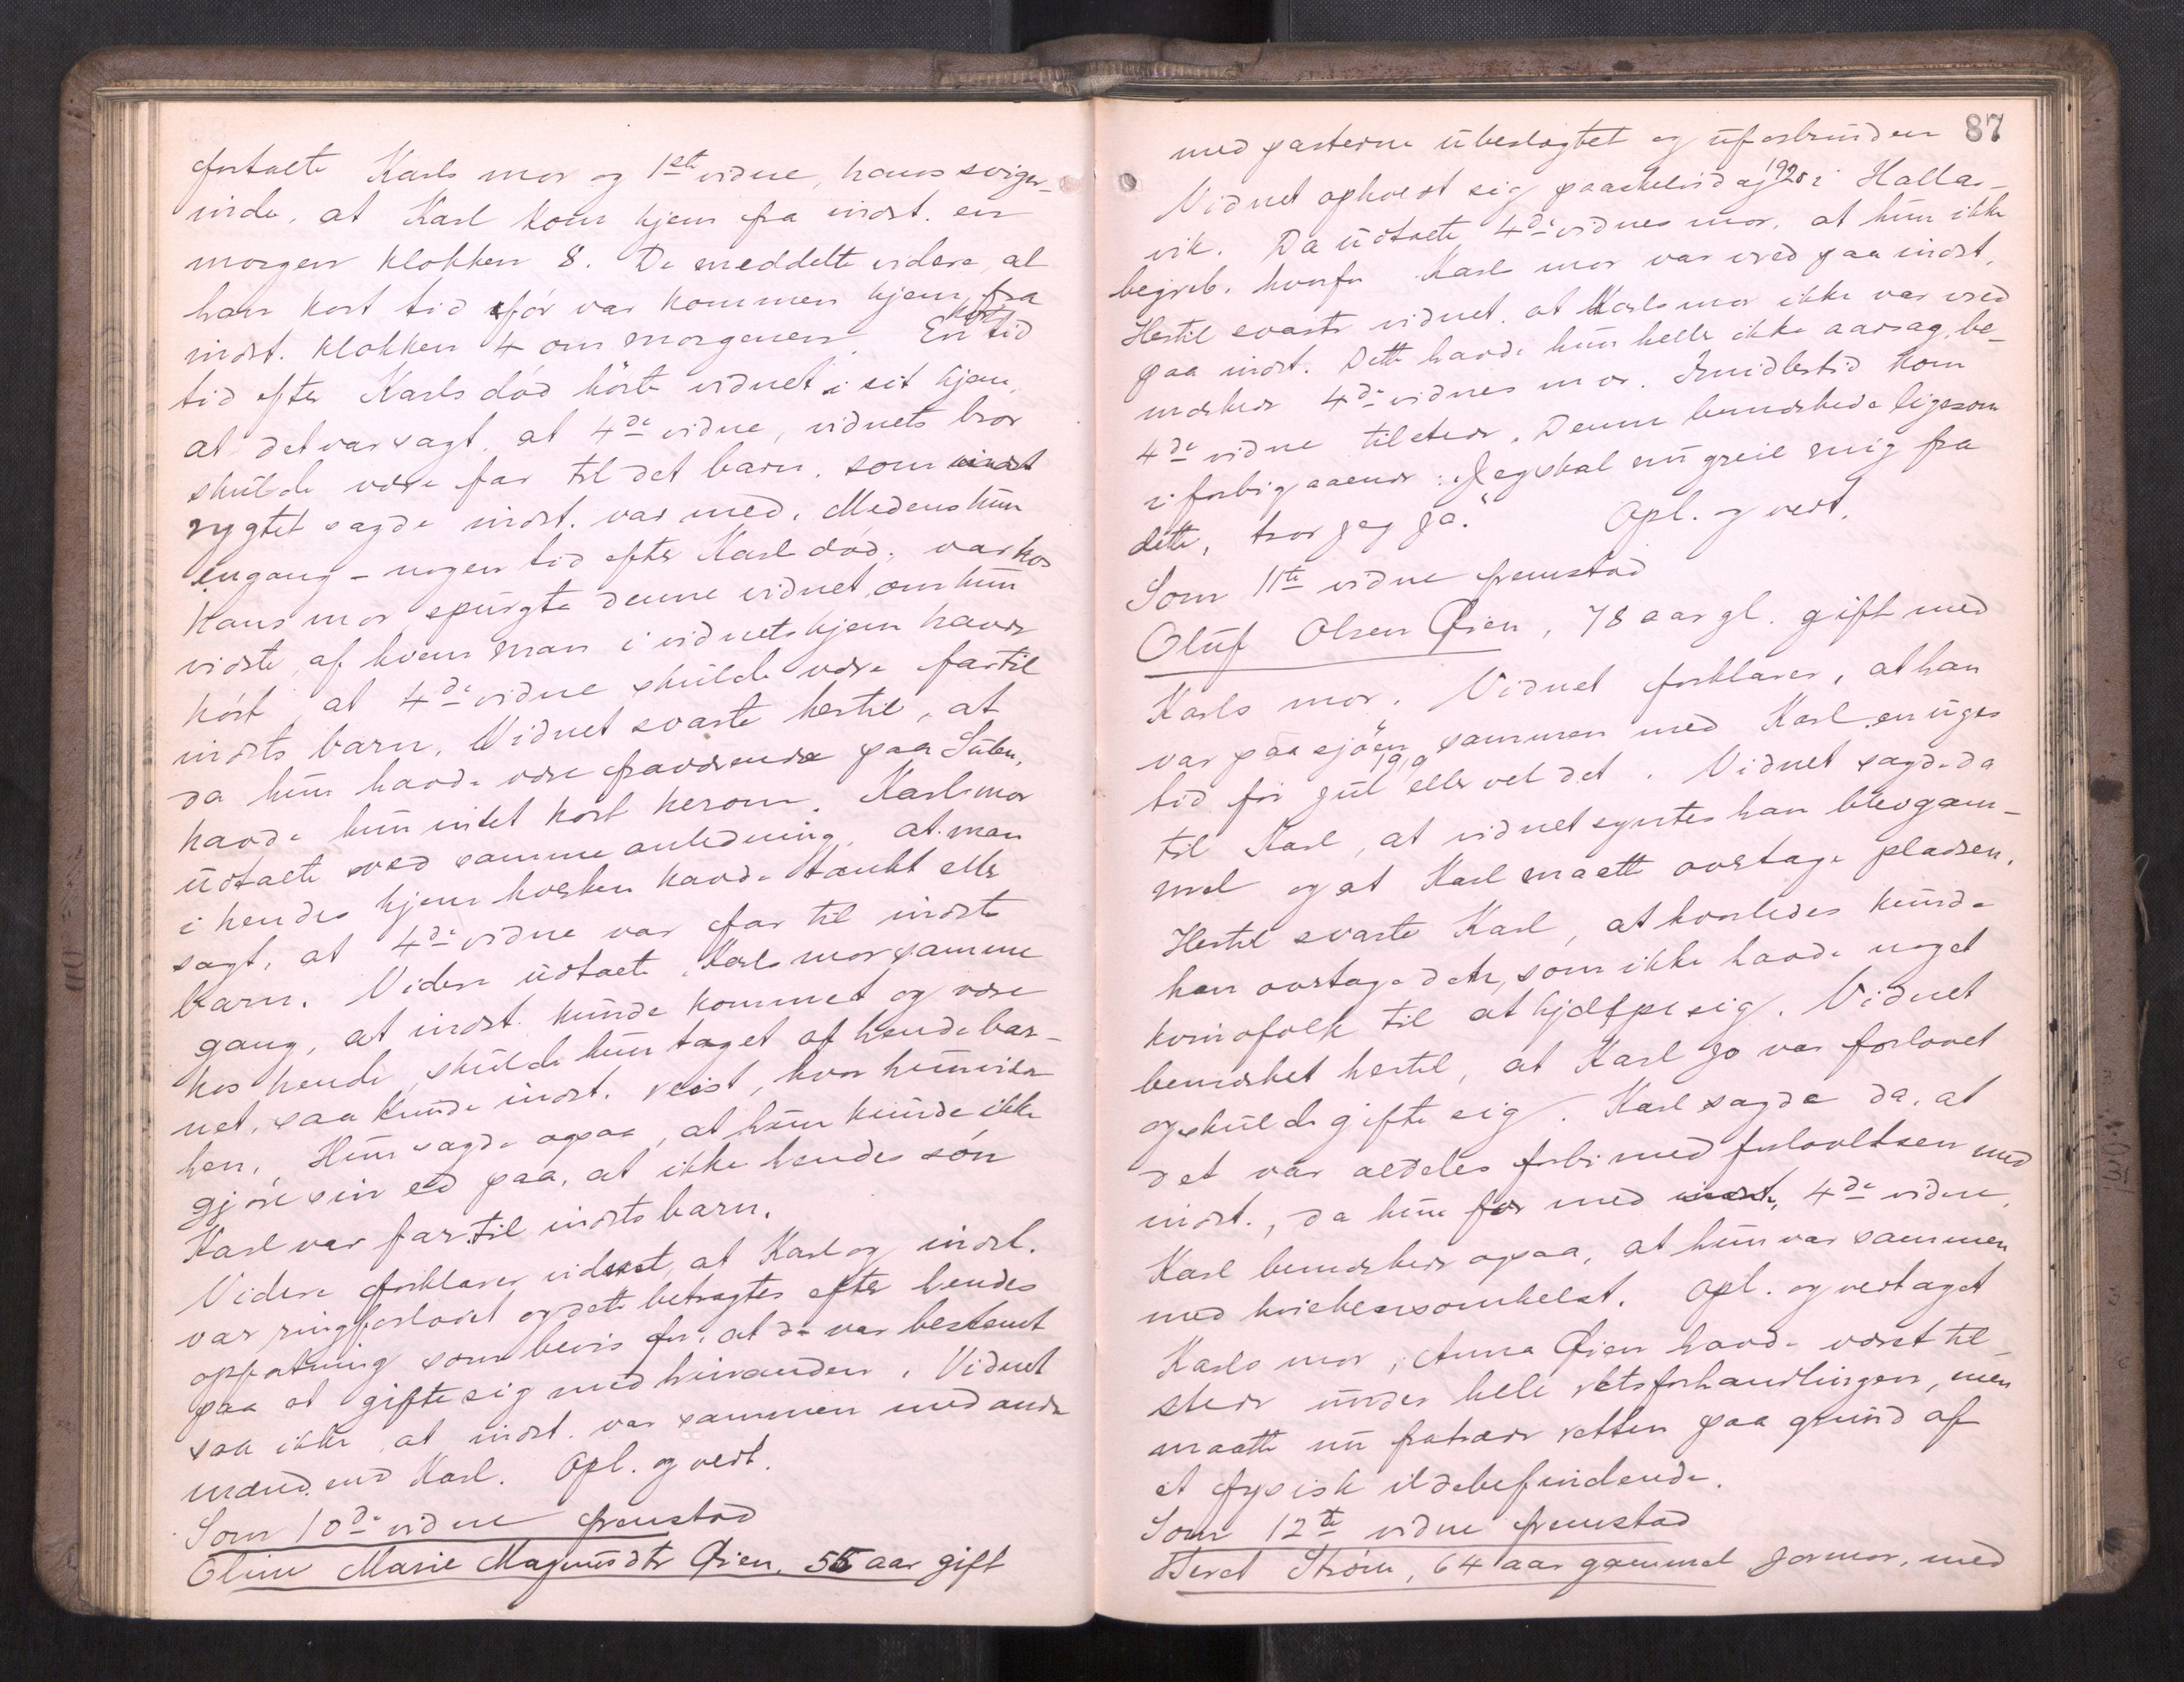 fortalte Karls mor og 1ste vidne, hans sviger-
inde, at Karl kom hjem fra indst. en
morgen klokken 8. De meddelte videre, at
han kort tid før var kommen hjem fra
indst. klokken 4 om morgenen. En kort tid
tid efter Karls død hörte vidnet i sit hjem,
at det var sagt, at 4de vidne, vidnets bror
skulde være far til det barn, som indst
rygtet sagde indst. var med. Medens hun
engang - nogen tid efter Karls död, var hos
hans mor spurgte denne vidnet, om hun
vidste, af hvem man i vidnets hjem havde
hört, at 4de vidne skulde være far til
indsts barn. Vidnet svarte hertil, at
da hun havde været fraværende paa Sulen,
havde hun intet hört herom. Karls mor
udtalte ved samme anledning, at man
i hendes hjem hverken havde tænkt eller
sagt, at 4de vidne var far til indsts
barn. Videre udtalte Karls mor samme
gang, at indst. kunde kommet og være
hos hende, skulde hun taget af hende bar-
net, saa kunde indst. reist, hvor hun vilde
hen. Hun sagde ogsaa, at hun kunde ikke
gjøre sin ed paa, at ikke hendes søn
Karl var far til indsts barn.
Videre forklarer vidnet, at Karl og indst.
var ringforlovet og dette betragtes efter hendes
opfatning som bevis for, at de var bestemt
paa at gifte sig med hinanden. Vidnet
saa ikke, at indst. var sammen med andre
mænd end Karl. Opl. og vedt.
Som 10de vidne fremstod
Oline Marie Magnusdtr Øien, 55 aar gift
87
med parterne ubeslægtet og uforbunden
Vidnet opholdt sig paaskeleid af 1920 i Halla-
vik. Da udtalte 4de vidnes mor, at hun ikke
begreb, hvorfor Karls mor var vred paa indst.
Hertil svarte vidnet, at Karls mor ikke var vred
paa indst. Dette havde hun heller ikke aarsag, be-
mærker 4de vidnes mor. Imidlertid kom
4de vidne tilstede. Denne bemærkede ligesom
i forbigaaende: "Jeg skal nu greie mig fra
dette, tror jeg ja." Opl. og vedt.
Som 11te vidne fremstod
Oluf Olsen Øien, 78 aar gl. gift med
Karls mor. Vidnet forklarer, at han
var paa sjöen sammen med Karl en uges
tid før jul 1919 eller vel det. Vidnet sagde da
til Karl, at vidnet syntes han blev gam-
mel og at Karl maatte overtage pladsen.
Hertil svarte Karl, at hvorledes kunde
han overtage den, som ikke havde noget
kvindfolk til at hjælpe sig. Vidnet
bemærket hertil, at Karl jo var forlovet
og skulde gifte sig. Karl sagde da, at
det var aldeles forbi med forlovelsen med
indst., da hun for med indst, 4de vidne.
Karl bemærkede ogsaa, at hun var sammen
med hvilkensomhelst. Opl. og vedtaget
Karls mor, Anna Øien havde været til-
stede under hele retsforhandlingen, men
maatte nu fratræde retten paa grund af
et fysisk ildebefindende.
Som 12te vidne fremstod
Beret Strøm, 64 aar gammel jormor, med